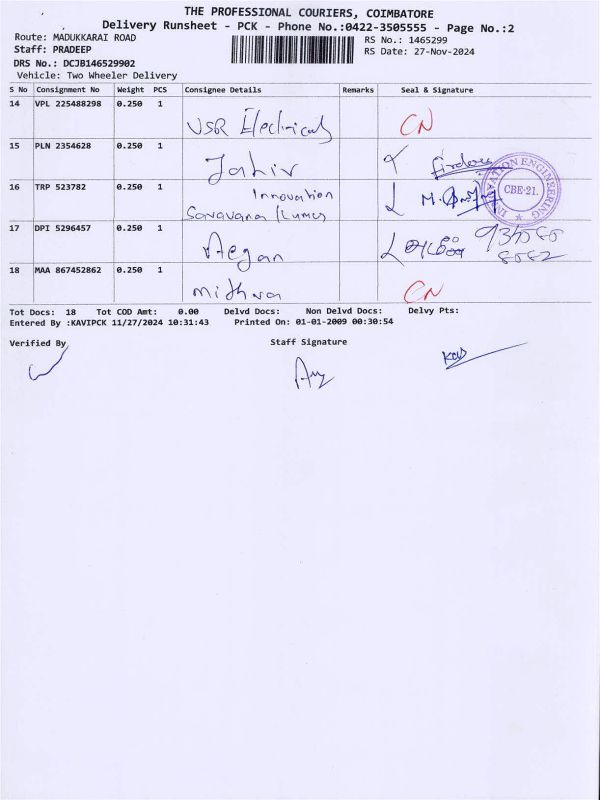 THE PROFESSIONAL COURIERS, COIMBATORE
Delivery Runsheet - PCK - Phone No.:0422-3505555 - Page No.:2
Route: MADUKKARAI ROAD
RS No.: 1465299
Staff: PRADEEP
RS Date: 27-Nov-2024
DRS No.: DCJB146529902
Vehicle: Two Wheeler Delivery
S No Consignment No Weight PCS Consignee Details Remarks Seal & Signature
14 VPL 225488298 0.250 1
USR Electricals CN
15 PLN 2354628 0.250 1
Jahir Firdous
16 TRP 523782 0.250 1
Innovation M.
Saravana (Lumus
INNOVATION ENGINEERING CBE-21.
17 DPI 5296457 0.250 1
Aegan
18 MAA 867452862 0.250 1
Mithra CN
Tot Docs: 18 Tot COD Amt: 0.00 Delvd Docs: Non Delvd Docs: Delvy Pts:
Entered By :KAVIPCK 11/27/2024 10:31:43 Printed On: 01-01-2009 00:30:54
Verified By Staff Signature